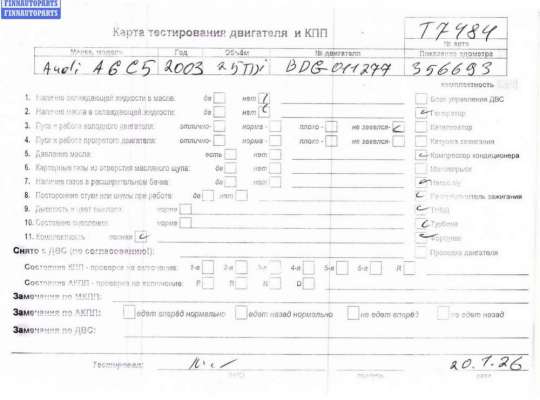 FINNAUTOPARTS
FINNAUTOPARTS
Карта тестирования двигателя и КПП
T7484
№ авто
Марка, модель Год Объём № двигателя Показание одометра
Audi A6 C5 2003 2.5 TDi BDG-011277 356693
комплектность
1. Наличие охлаждающей жидкости в масле: да нет Блок управления ДВС
2. Наличие масла в охлаждающей жидкости: да нет Генератор
3. Пуск и работа холодного двигателя: отлично- норма - плохо - не завелся-
4. Пуск и работа прогретого двигателя: отлично- норма - плохо - не завелся- Катушка зажигания
5. Давление масла: есть нет Компрессор кондиционера
6. Картерные газы из отверстия масляного щупа: да нет
7. Наличие газов в расширительном бачке: да нет Насос г/у
8. Посторонние стуки или шумы при работе: да нет зажигания
9. Дымность и цвет выхлопа: норма ТНВД
10. Состояние норма Турбина
11. Комплектность полная Форсунки
Снято с ДВС (по согласованию!): Проводка двигателя
Состояние КПП - проверка на включение: 1-я 2-я 3-я 4-я 5-я 6-я R
Состояние АКПП - проверка на включение: P R N D
Замечания по МКПП:
Замечания по АКПП: едет вперёд нормально едет назад нормально не едет вперёд не едет назад
Замечания по ДВС:
Тестировал: 20.1.26
дата